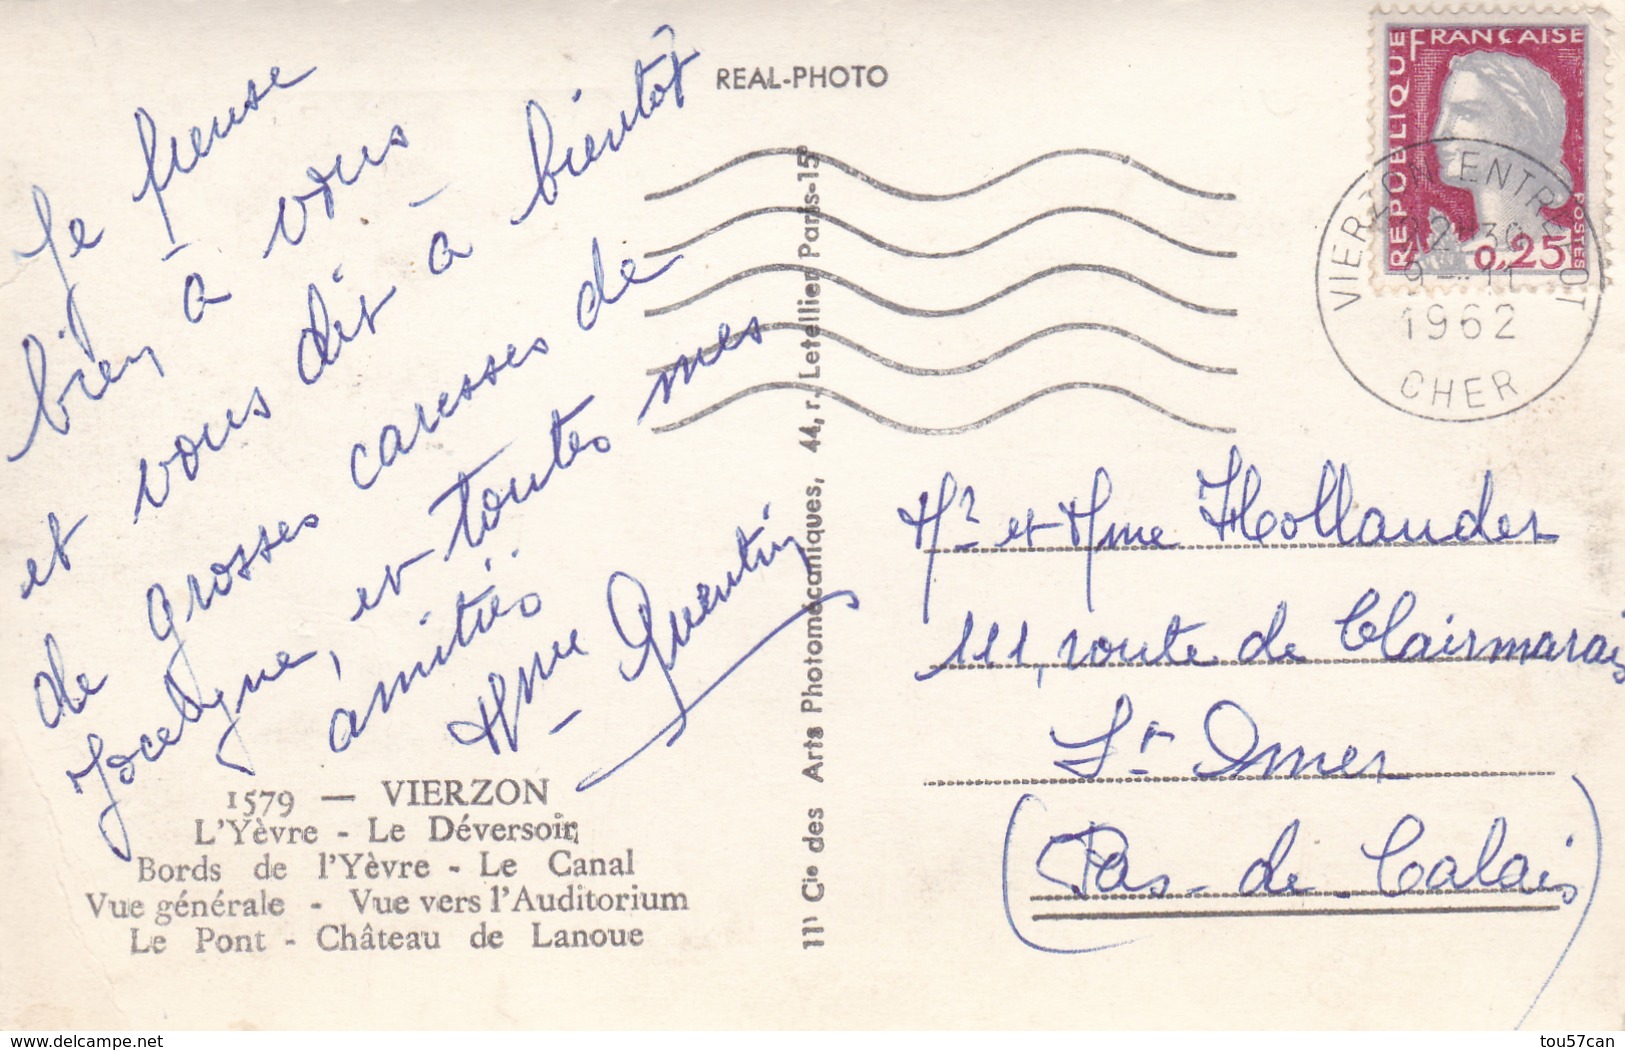 Je pense
bien à vous
et vous dit à bientôt
de grosses caresses de
Jocelyne, et toutes mes
amitiés
Mme Quentin
1579 — VIERZON
L'Yèvre - Le Déversoir,
Bords de l'Yèvre - Le Canal
Vue générale - Vue vers l'Auditorium
Le Pont - Château de Lanoue
REAL-PHOTO
Cie des Arts Photomécaniques, 44, r. Letellier Paris-15e
REPUBLIQUE FRANÇAISE
POSTES
0,25
VIERZON ENTREPOT
1962
CHER
Mr et Mme Hollander
111, route de Clairmarais
St Omer
(Pas-de-Calais)
tou57can